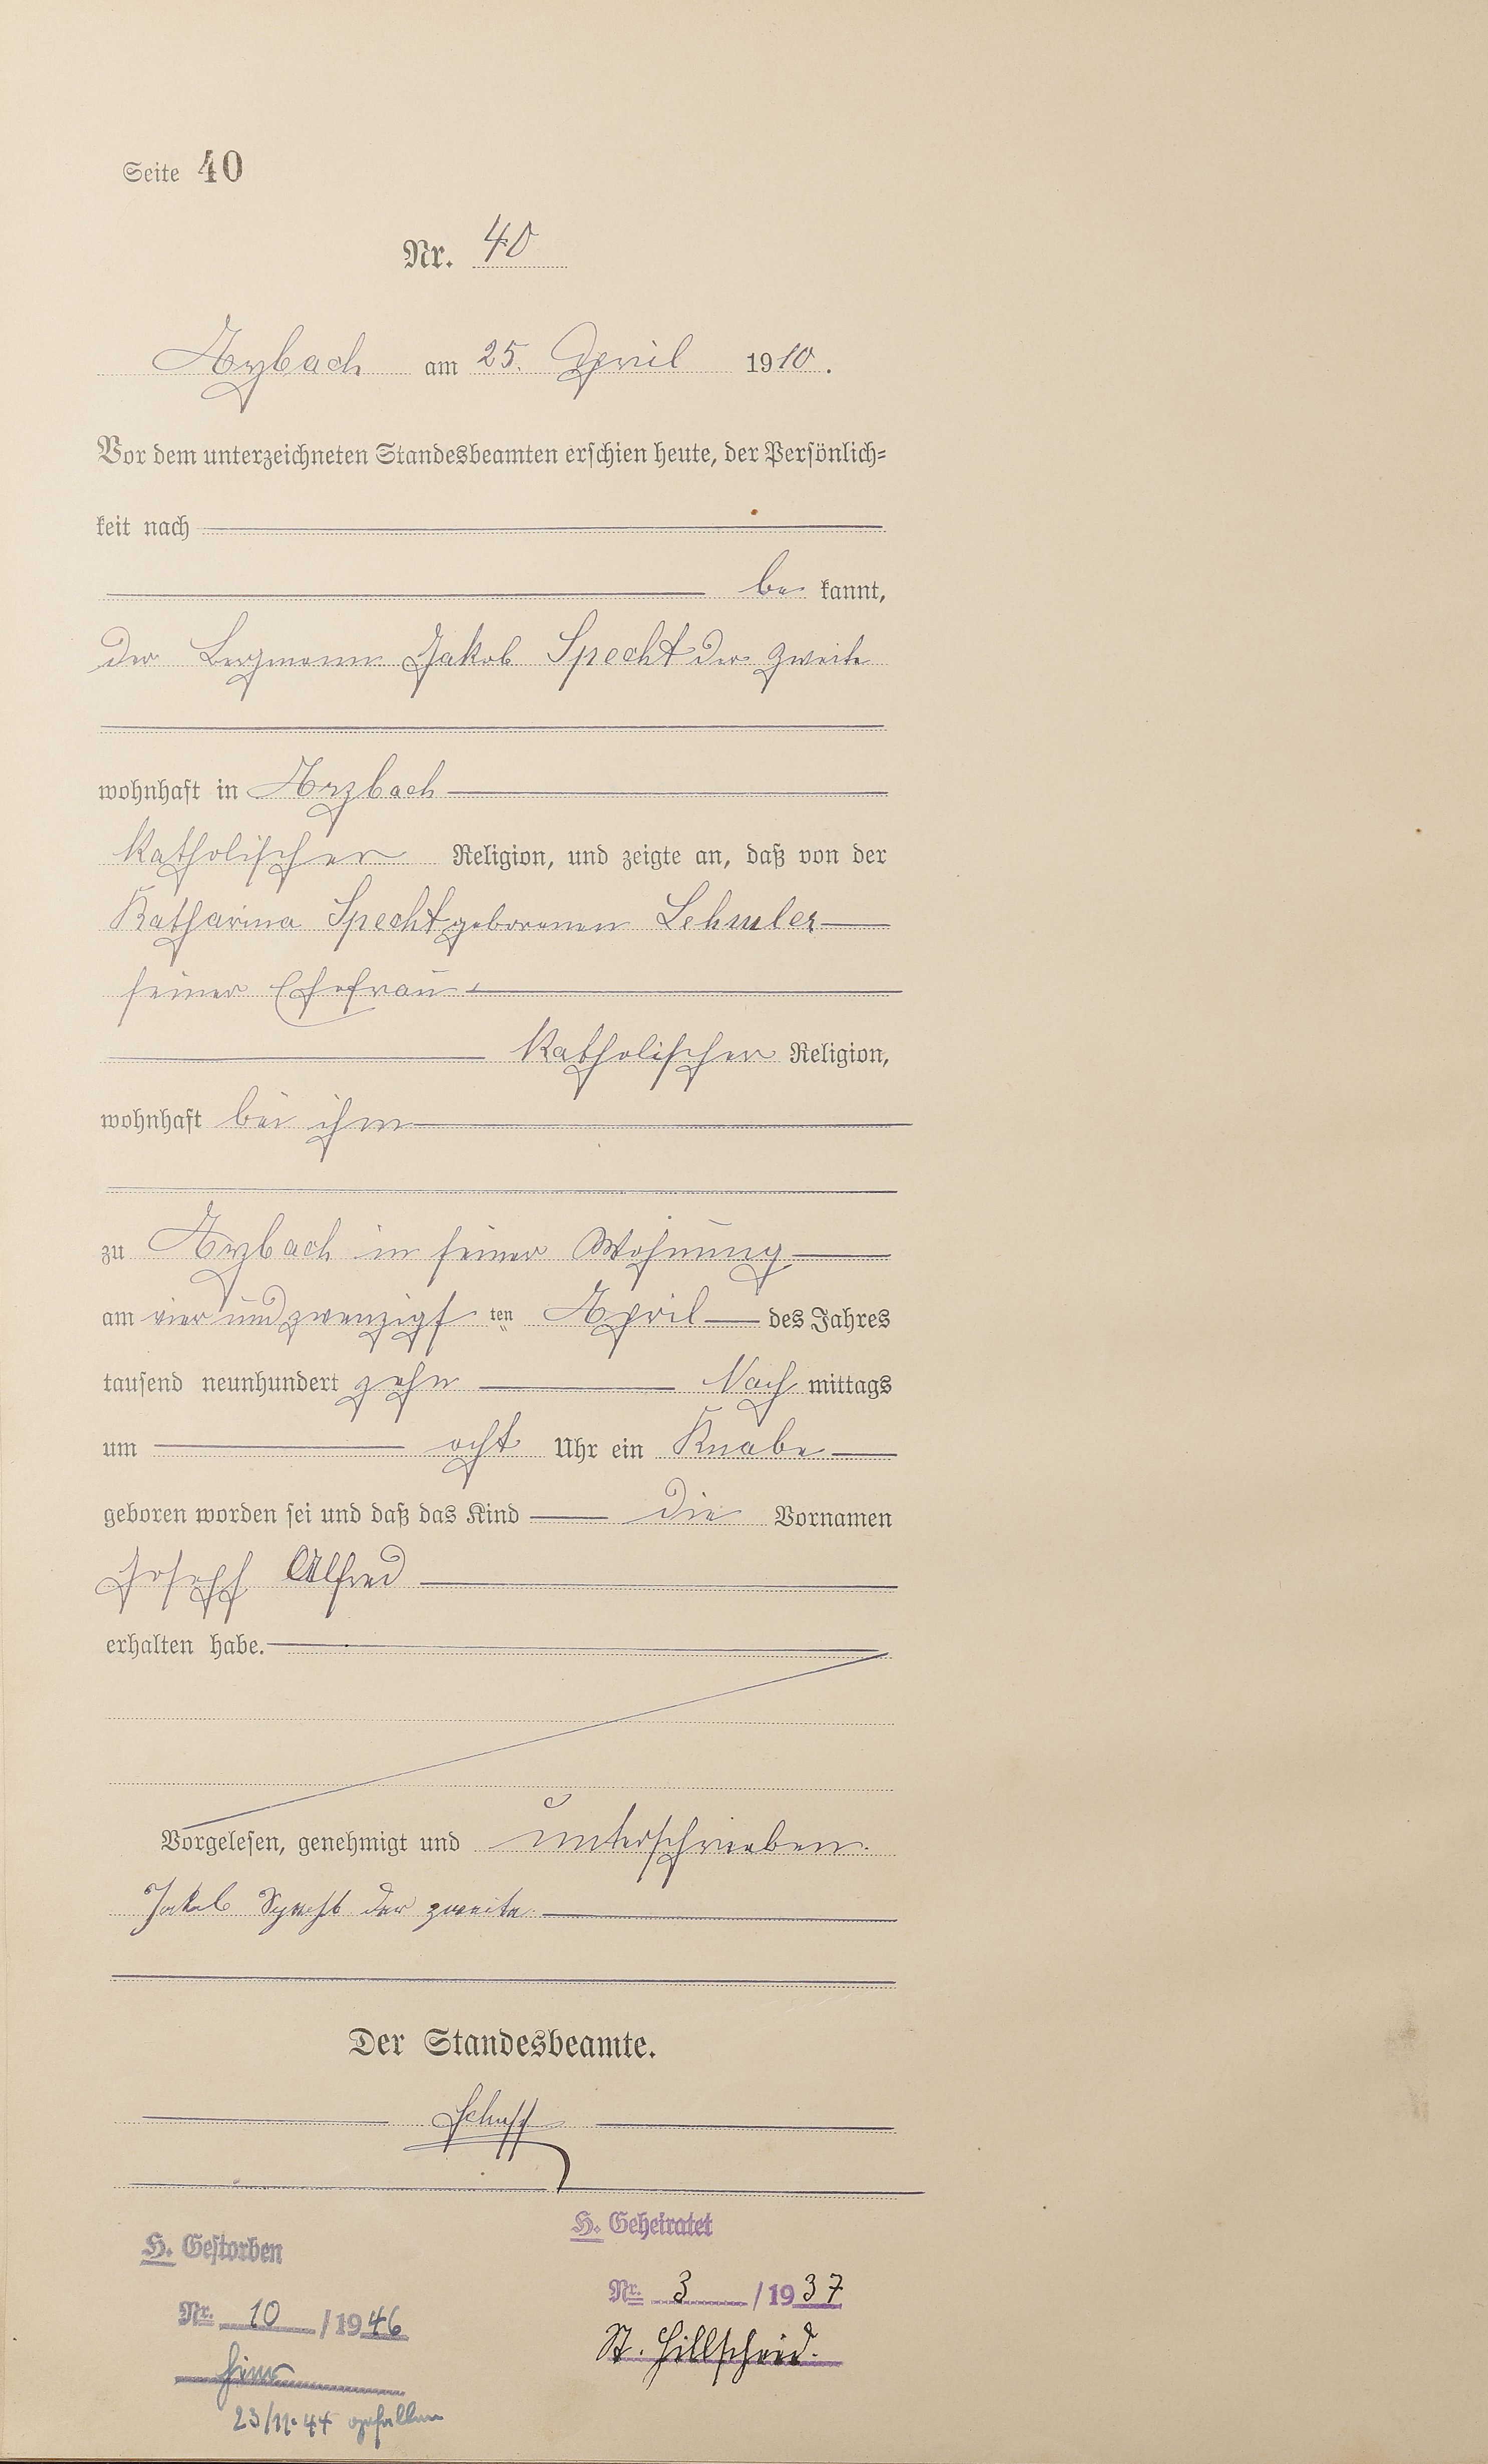 Seite 40
Nr. 40
Arzbach am 25. April 1910.
Vor dem unterzeichneten Standesbeamten erschien heute, der Persönlich-
keit nach
be kannt,
der Bergmann Jakob Specht der zweite
wohnhaft in Arzbach
katholischer Religion, und zeigte an, daß von der
Katharina Specht geborenen Lehmler
seiner Ehefrau
katholischer Religion,
wohnhaft bei ihm
zu Arzbach in seiner Wohnung
am vier und zwanzigs ten April des Jahres
tausend neunhundert zehn Nach mittags
um acht Uhr ein Knabe
geboren worden sei und daß das Kind die Vornamen
Joseph Alfred
erhalten habe.
Vorgelesen, genehmigt und unterschrieben.
Jakob Specht der zweite
Der Standesbeamte.
H. Geheiratet
H. Gestorben
Nr. 3 / 1937
Nr. 10 / 1946
St. Hillscheid.
hier
23/11. 44 gefallen